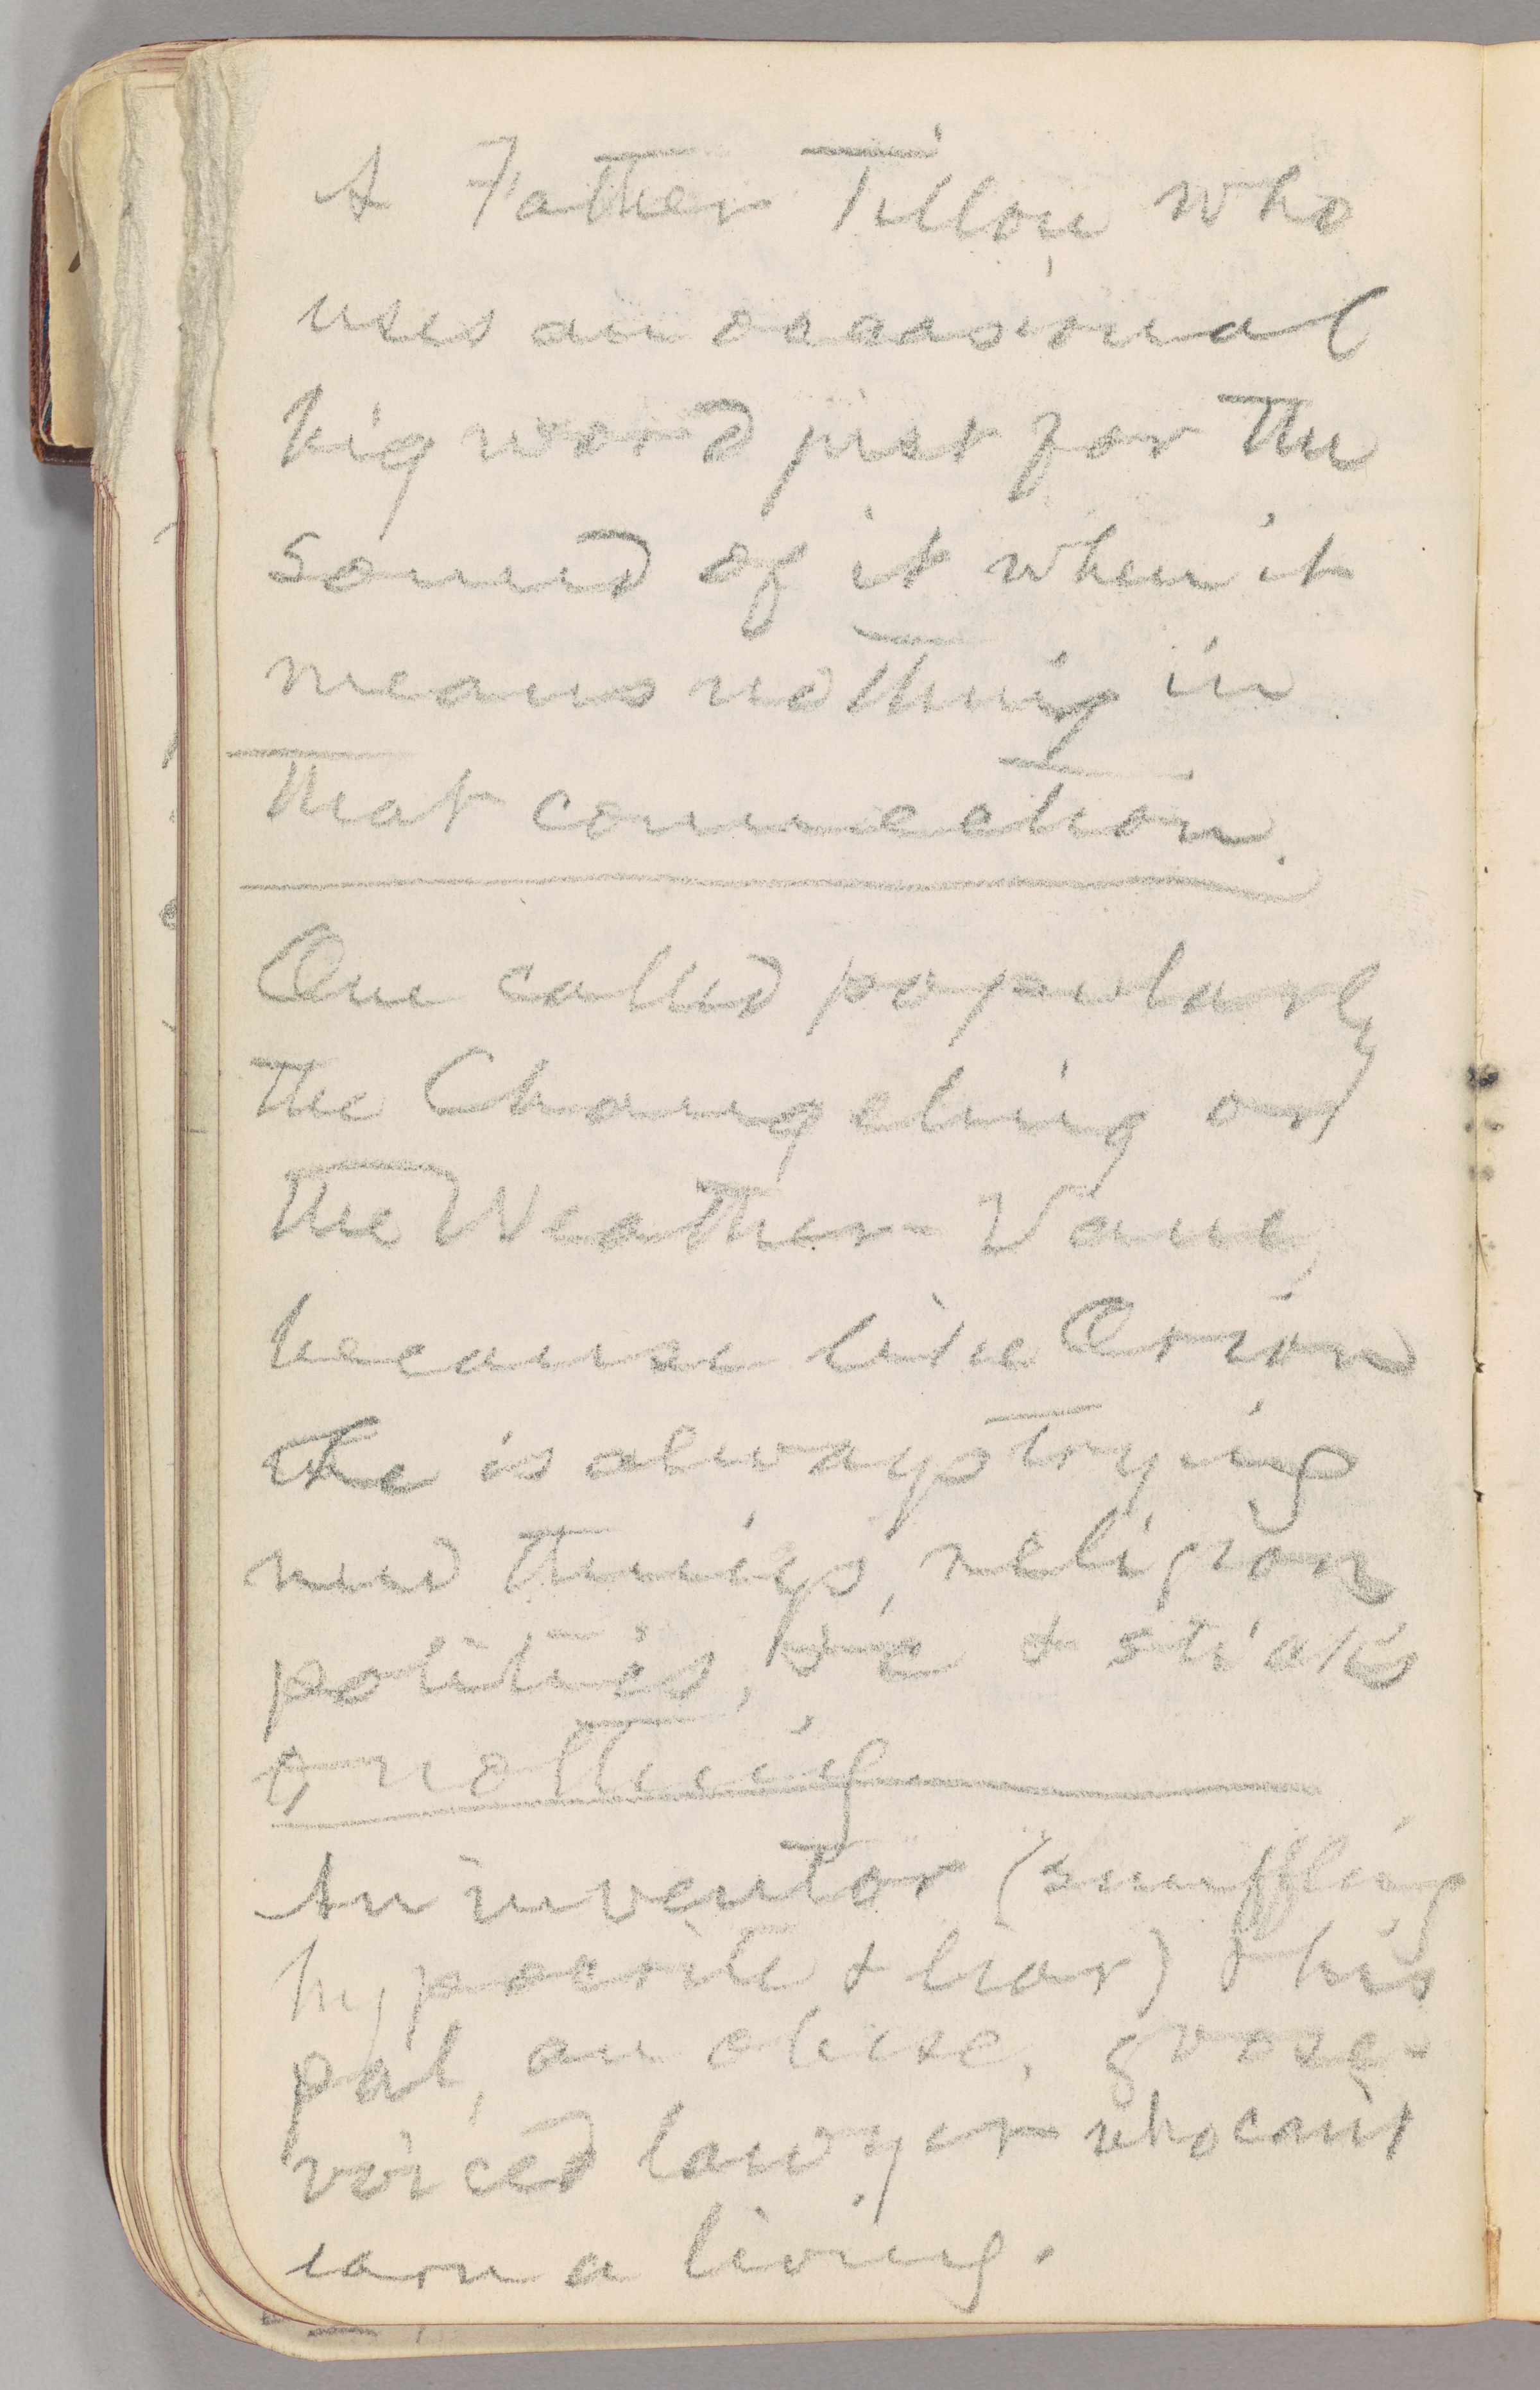 A Father Tillou who
uses an occasional
big word just for the
sound of it when it
means nothing in
that connection.
One called popularly
the Changeling or
the Weather-Vane,
because like Orion
he is always trying
new things, religion
politics, &c & sticks
to nothing
An inventor (snuffling
hypocrite & liar) & his
pal, an obese, goose-
voiced lawyer who can't
earn a living.